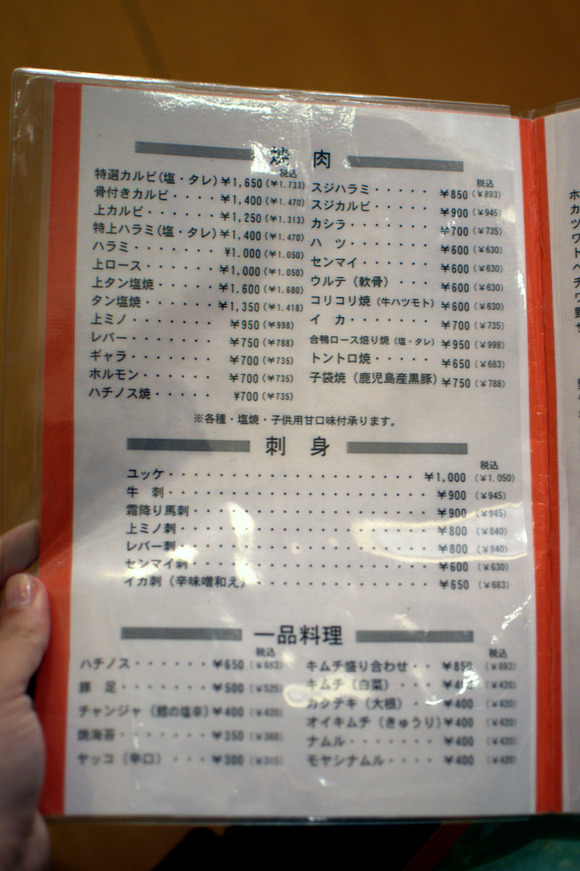 焼 肉
税込
特選カルビ(塩・タレ) ¥1,650 (¥1.733)
骨付きカルビ・・・・ ¥1,400 (¥1.470)
上カルビ・・・・・・ ¥1,250 (¥1.313)
特上ハラミ(塩・タレ) ¥1,400 (¥1.470)
ハラミ・・・・・・・ ¥1.000 (¥1.050)
上ロース・・・・・・ ¥1,000 (¥1.050)
上タン塩焼・・・・・ ¥1.600 (¥1.680)
タン塩焼・・・・・・ ¥1,350 (¥1.418)
上ミノ・・・・・・・ ¥950 (¥998)
レバー・・・・・・・ ¥750 (¥788)
ギャラ・・・・・・・ ¥700 (¥735)
ホルモン・・・・・・ ¥700 (¥735)
ハチノス焼・・・・・ ¥700 (¥735)
税込
スジハラミ・・・・・ ¥850 (¥893)
スジカルビ・・・・・ ¥900 (¥945)
カシラ・・・・・・・ ¥700 (¥735)
ハ ツ・・・・・・・ ¥600 (¥630)
センマイ・・・・・・ ¥600 (¥630)
ウルテ(軟骨)・・・・ ¥600 (¥630)
コリコリ焼(牛ハツモト) ¥600 (¥630)
イ カ・・・・・・・ ¥700 (¥735)
合鴨ロース焙り焼(塩・タレ) ¥950 (¥998)
トントロ焼・・・・・ ¥650 (¥683)
子袋焼(鹿児島産黒豚) ¥750 (¥788)
※各種・塩焼・子供用甘口味付承ります。
刺 身
税込
ユッケ・・・・・・・・・・・・・・・ ¥1,000 (¥1.050)
牛 刺・・・・・・・・・・・・・・・ ¥900 (¥945)
霜降り馬刺・・・・・・・・・・・・・ ¥900 (¥945)
上ミノ刺・・・・・・・・・・・・・・ ¥800 (¥840)
レバー刺・・・・・・・・・・・・・・ ¥800 (¥840)
センマイ刺・・・・・・・・・・・・・ ¥600 (¥630)
イカ刺(辛味噌和え)・・・・・・・・・ ¥650 (¥683)
一品料理
税込
ハチノス・・・・・・ ¥650 (¥683)
豚 足・・・・・・・ ¥500 (¥525)
チャンジャ(鱈の塩辛) ¥400 (¥420)
焼海苔・・・・・・・ ¥350 (¥368)
ヤッコ(辛口)・・・・ ¥300 (¥315)
税込
キムチ盛り合わせ・・ ¥850 (¥893)
キムチ(白菜)・・・・ ¥400 (¥420)
カクテキ(大根)・・・ ¥400 (¥420)
オイキムチ(きゅうり) ¥400 (¥420)
ナムル・・・・・・・ ¥400 (¥420)
モヤシナムル・・・・ ¥400 (¥420)